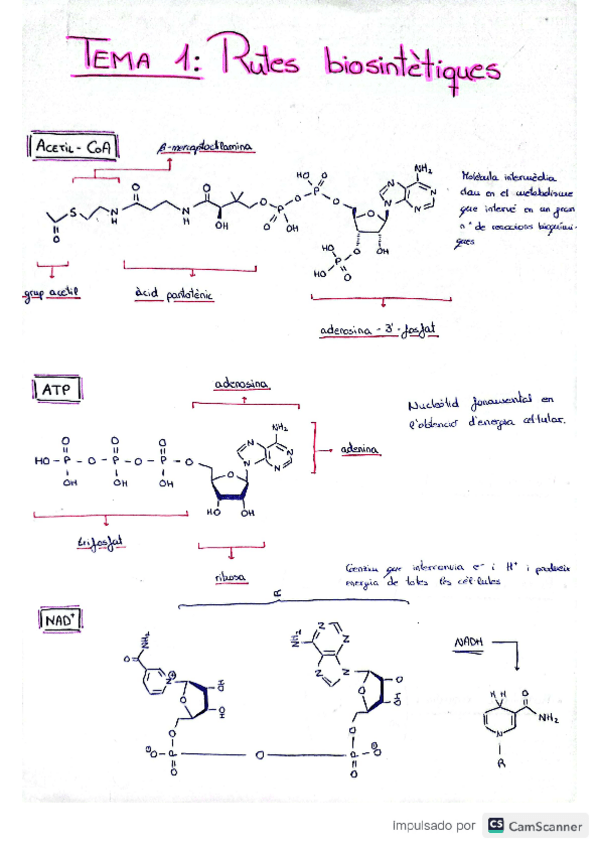 TEMA 1: Rutes biosintètiques
ACETIL-CoA
β-mercaptoetilamina
Molècula intermèdia
clau en el metabolisme
que intervé en un gran
nº de reaccions bioquími-
ques
NH₂
HO O
P
O
N N
N N
O O
S N H N H OH
O P O
O OH
HO
HO P O OH
O
O
grup acetil
àcid pantotènic
adenosina-3'-fosfat
ATP
adenosina
Nucleòtid fonamental en
l'obtenció d'energia cel·lular.
NH₂
N N
N N
adenina
O O O
HO-P-O-P-O-P-O
OH OH OH
O
HO OH
trifosfat
ribosa
Coenzim que intercanvia e⁻ i H⁺ i produeix
energia de totes les cèl·lules
R
NAD⁺
NADH
NH₂
O
N
O
OH
OH
O
NH₂
N N
N N
O
O
OH
O
⊖O-P O P-O⊖
O O
H H O
NH₂
N
R
Impulsado por CS CamScanner